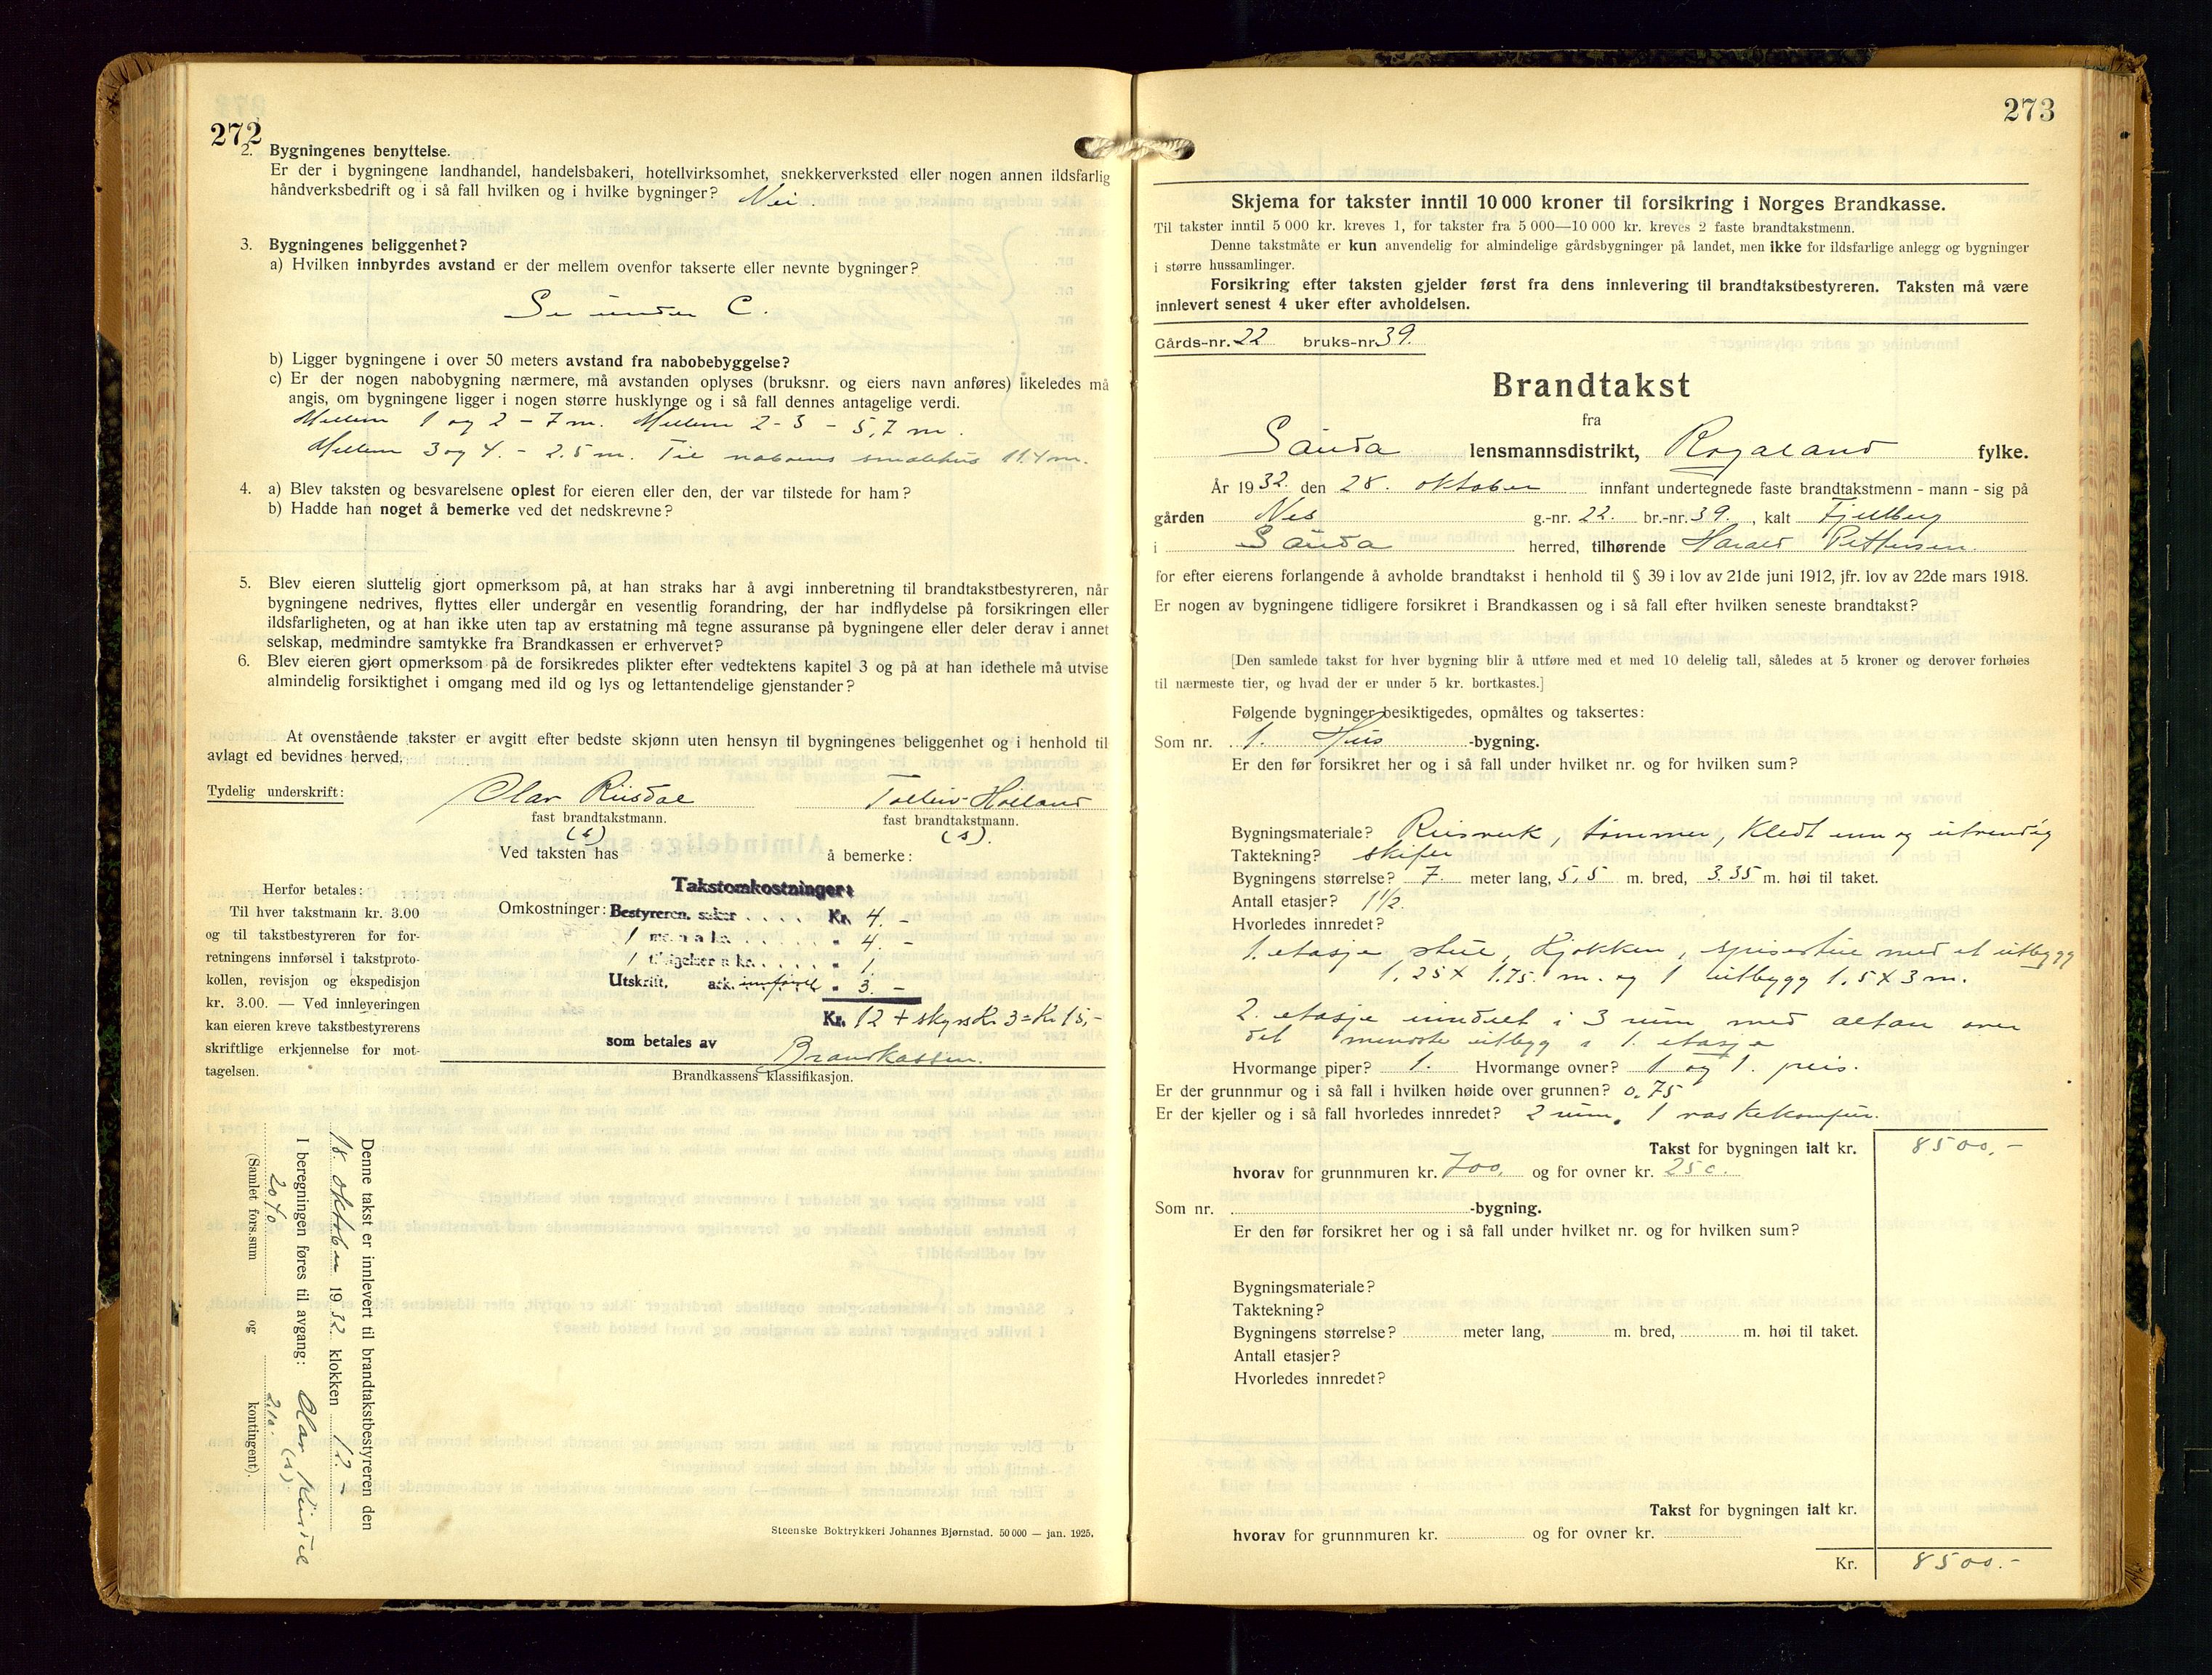 272
2. Bygningenes benyttelse.
Er der i bygningene landhandel, handelsbakeri, hotellvirksomhet, snekkerverksted eller nogen annen ildsfarlig
håndverksbedrift og i så fall hvilken og i hvilke bygninger? Nei.
3. Bygningenes beliggenhet?
a) Hvilken innbyrdes avstand er der mellem ovenfor takserte eller nevnte bygninger?
Se under C.
b) Ligger bygningene i over 50 meters avstand fra nabobebyggelse?
c) Er der nogen nabobygning nærmere, må avstanden oplyses (bruksnr. og eiers navn anføres) likeledes må
angis, om bygningene ligger i nogen større husklynge og i så fall dennes antagelige verdi.
Mellem 1 og 2 - 7 m. Mellem 2-3 - 5,7 m.
Mellem 3 og 4. - 2.5 m. Til naboens smalehus 11.4 m.
4. a) Blev taksten og besvarelsene oplest for eieren eller den, der var tilstede for ham?
b) Hadde han noget å bemerke ved det nedskrevne?
5. Blev eieren sluttelig gjort opmerksom på, at han straks har å avgi innberetning til brandtakstbestyreren, når
bygningene nedrives, flyttes eller undergår en vesentlig forandring, der har indflydelse på forsikringen eller
ildsfarligheten, og at han ikke uten tap av erstatning må tegne assuranse på bygningene eller deler derav i annet
selskap, medmindre samtykke fra Brandkassen er erhvervet?
6. Blev eieren gjort opmerksom på de forsikredes plikter efter vedtektens kapitel 3 og på at han idethele må utvise
almindelig forsiktighet i omgang med ild og lys og lettantendelige gjenstander?
At ovenstående takster er avgitt efter bedste skjønn uten hensyn til bygningenes beliggenhet og i henhold til
avlagt ed bevidnes herved.
Tydelig underskrift: Olav Riisdal Tolleiv Hølland
fast brandtakstmann. fast brandtakstmann.
(s) (s).
Ved taksten has å bemerke:
Herfor betales:
Til hver takstmann kr. 3.00
og til takstbestyreren for for-
retningens innførsel i takstproto-
kollen, revisjon og ekspedisjon
kr. 3.00. — Ved innleveringen
kan eieren kreve takstbestyrerens
skriftlige erkjennelse for mot-
tagelsen.
Takstomkostninger:
Omkostninger: Bestyreren, saker . . . . Kr. 4. -
1 mann a kr. . . . . . " 4. -
1 tilsigelser a kr. . . . . " 1.
Utskrift, ark. innførsel " 3. -
Kr. 12 + skyss Kr 3 = Kr 15,-
som betales av Brandkassen.
Brandkassens klassifikasjon.
Denne takst er innlevert til brandtakstbestyreren den
18. oktober 1932. klokken 12. -
I beregningen føres til avgang: Olav Riisdal
(s)
2040 2,10.
(Samlet fors.sum og kontingent).
Steenske Boktrykkeri Johannes Bjørnstad. 50 000 — jan. 1925.
273
Skjema for takster inntil 10 000 kroner til forsikring i Norges Brandkasse.
Til takster inntil 5 000 kr. kreves 1, for takster fra 5 000—10 000 kr. kreves 2 faste brandtakstmenn.
Denne takstmåte er kun anvendelig for almindelige gårdsbygninger på landet, men ikke for ildsfarlige anlegg og bygninger
i større hussamlinger.
Forsikring efter taksten gjelder først fra dens innlevering til brandtakstbestyreren. Taksten må være
innlevert senest 4 uker efter avholdelsen.
Gårds-nr. 22 bruks-nr. 39.
Brandtakst
fra
Sauda lensmannsdistrikt, Rogaland fylke.
År 1932. den 28. oktober innfant undertegnede faste brandtakstmenn - mann - sig på
gården Nes g.-nr. 22. br.-nr. 39., kalt Fjellberg
i Sauda herred, tilhørende Harald Pettersen.
for efter eierens forlangende å avholde brandtakst i henhold til § 39 i lov av 21de juni 1912, jfr. lov av 22de mars 1918.
Er nogen av bygningene tidligere forsikret i Brandkassen og i så fall efter hvilken seneste brandtakst?
[Den samlede takst for hver bygning blir å utføre med et med 10 delelig tall, således at 5 kroner og derover forhøies
til nærmeste tier, og hvad der er under 5 kr. bortkastes.]
Følgende bygninger besiktigedes, opmåltes og taksertes:
Som nr. 1. Hus -bygning.
Er den før forsikret her og i så fall under hvilket nr. og for hvilken sum?
Bygningsmateriale? Reisverk, tømmer, kledt inn og utvendig
Taktekning? skifer
Bygningens størrelse? 7. meter lang, 5,5 m. bred, 3.35 m. høi til taket.
Antall etasjer? 1½.
Hvorledes innredet?
1. etasje stue, kjøkken, spisestue med et utbygg
1,25 x 1.75. m. og 1 utbygg 1.5 x 3 m.
2. etasje inndelt i 3 rum med altan over
det mindste utbygg i 1. etasje
Hvormange piper? 1. Hvormange ovner? 1 og 1. peis.
Er der grunnmur og i så fall i hvilken høide over grunnen? 0.75
Er der kjeller og i så fall hvorledes innredet? 2 rum. 1 vaskekomfur.
Takst for bygningen ialt kr. 8500,-
hvorav for grunnmuren kr. 700. og for ovner kr. 250.
Som nr. -bygning.
Er den før forsikret her og i så fall under hvilket nr. og for hvilken sum?
Bygningsmateriale?
Taktekning?
Bygningens størrelse? meter lang, m. bred, m. høi til taket.
Antall etasjer?
Hvorledes innredet?
Takst for bygningen ialt kr.
hvorav for grunnmuren kr. og for ovner kr.
Kr. 8500.-